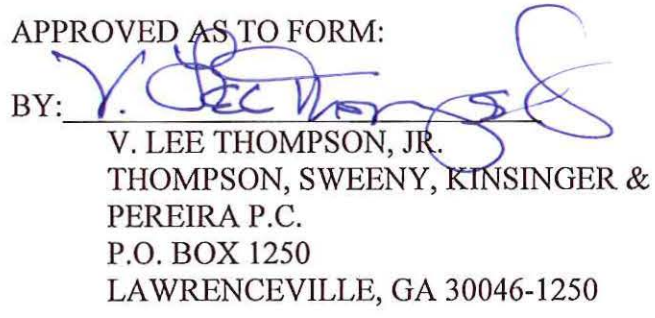 APPROVED AS TO FORM:
BY: V. Lee Thompson Jr
V. LEE THOMPSON, JR.
THOMPSON, SWEENY, KINSINGER &
PEREIRA P.C.
P.O. BOX 1250
LAWRENCEVILLE, GA 30046-1250